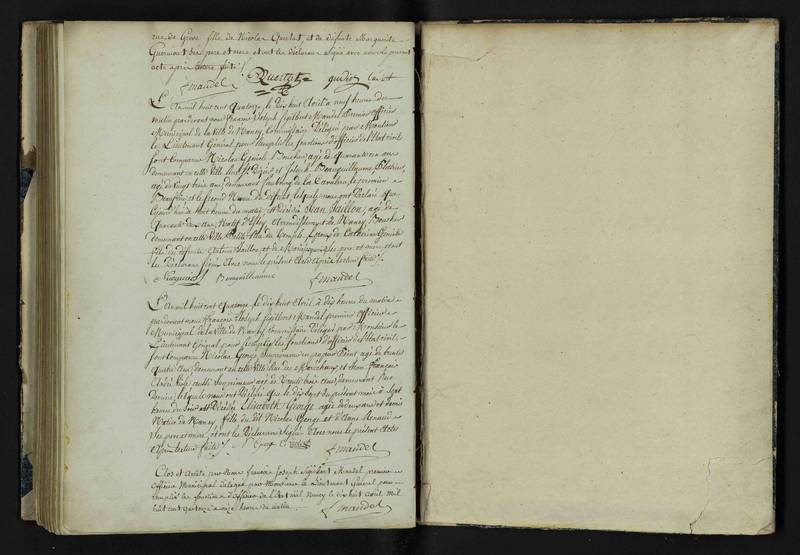 rue de Grève fille de Nicolas Quertat, et de défunte Marguerite
ses pere et mere et ont les déclarans Signé avec nous le présent
acte après lecture faite
Mandel Quertat
L'an mil huit cent Quatorze, le dix huit Avril à neuf heures du
matin pardevant nous françois Joseph Sigisbert Mandel premier officier
Municipal de la Ville de Nancy, Commissaire Délégué par Monsieur
le Lieutenant Général pour Remplir les fonctions d'officier de l'état civil
sont comparus Nicolas Boucher, agé de Quarante un ans
demeurant en cette Ville rue St Dizier, et Joseph Beauguillaume, Platrier,
agé de Vingt trois ans, demeurant faubourg de la Cavalerie, le premier
et le second Neveu du défunt, lesquels nous ont Déclaré que
Cejourd'hui à huit heures du matin, est décédé Jean Saillon, agé de
Quarante deux ans, Natif d' Arrondissement de Nancy, Boucher
demeurant en cette Ville Petite Rue du Temple, Epoux de Catherine
fils de défunts Antoine Saillon, et de ses pere et mere, et ont
les Déclarans Signé Avec nous le présent Acte Après lecture faite
Beauguillaume Mandel
L'an mil huit cent Quatorze le dix huit Avril à dix heures du matin
pardevant nous françois Joseph Sigisbert Mandel premier officier
Municipal de la Ville de Nancy Commissaire Délégué par Monsieur le
Lieutenant Général pour Remplir les fonctions d'officier de l'état civil,
sont comparus Nicolas George Imprimeur en papier Peint agé de trente
quatre ans, demeurant en cette Ville Rue des Maréchaux et Jean François
aussi Imprimeur agé de Trente trois Ans, demeurant Rue
lesquels nous ont Déclaré que le dix Sept du présent mois à Sept
heures du Soir est Décédée Elisabeth George agée de deux ans et demie
Native de Nancy, fille du dit Nicolas George et d'Anne Renaud
ses pere et mere, et ont les Déclarans Signé Avec nous le présent Acte
Après lecture faite
Mandel
Clos et Arrêté par Nous françois Joseph Sigisbert Mandel premier
officier Municipal délégué par Monsieur le Lieutenant Général pour
remplir les fonctions d'officier de l'état civil Nancy le dix huit avril mil
huit cent quatorze à onze heures du matin
Mandel